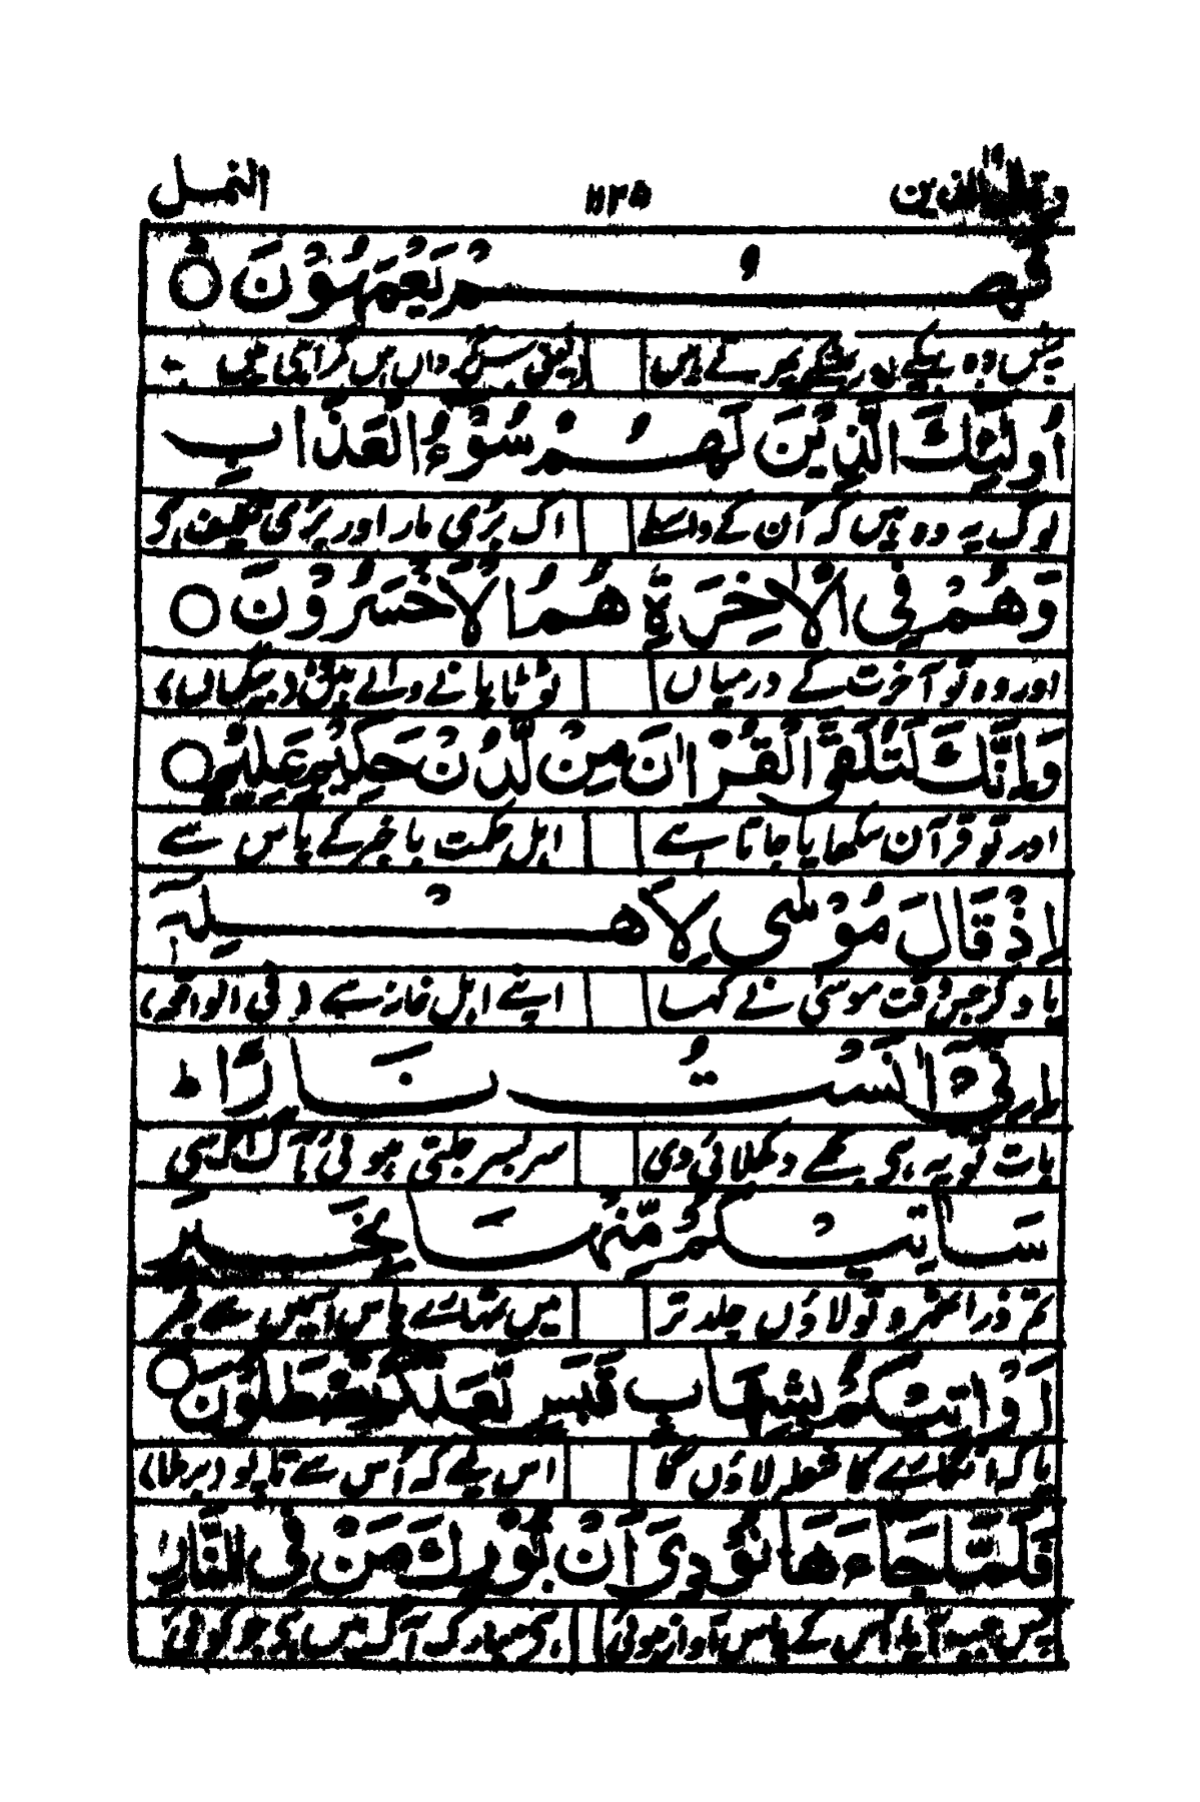 وقال الذین ۱۹ ۱۱۳۵ النمــل
فَهُمْ يَعْمَهُوْنَ ۝
پس وہ
اُولٰٓئِكَ الَّذِيْنَ لَهُمْ سُوْٓءُ الْعَذَابِ
لوگ یہ وہ ہیں کہ اُن کے واسطے اک بُری مار اور بُری تکلیف ہو گی
وَهُمْ فِي الْاٰخِرَةِ هُمُ الْاَخْسَرُوْنَ ۝
اور وہ تو آخرت کے درمیاں ٹوٹا پانے والے ہیں
وَاِنَّكَ لَتُلَقَّى الْقُرْاٰنَ مِنْ لَّدُنْ حَكِيْمٍ عَلِيْمٍ ۝
اور تو قرآن سکھایا جاتا ہے اہلِ حکمت با خبر کے پاس سے
اِذْ قَالَ مُوْسٰى لِاَهْلِهٖٓ
یاد کر جس وقت موسیٰ نے کہا اپنے اہلِ خانہ سے (فی الواقعہ)
اِنِّيْٓ اٰنَسْتُ نَارًا ؕ
بات تو یہ ہی مجھے دکھلائی دی سر بسر جلتی ہوئی آگ
سَاٰتِيْكُمْ مِّنْهَا بِخَبَرٍ
تم ذرا ٹھہرو تو لاؤں جلد تر میں تمہارے پاس اُسمیں سے خبر
اَوْ اٰتِيْكُمْ بِشِهَابٍ قَبَسٍ لَّعَلَّكُمْ تَصْطَلُوْنَ ۝
یا کہ انگارے کا شعلہ لاؤں گا اس لیے کہ اُس سے تاپو (برملا)
فَلَمَّا جَآءَهَا نُوْدِيَ اَنْۢ بُوْرِكَ مَنْ فِي النَّارِ
پس جب آیا اُس کے پاس آواز ہوئی ہی مبارک آگ میں ہی جو کوئی